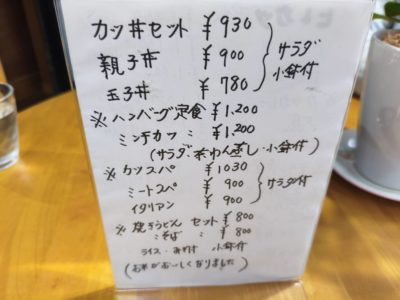 カツ丼セット ¥930
親子丼 ¥900
玉子丼 ¥780
サラダ
小鉢付
※ハンバーグ定食 ¥1,200
ミンチカツ 〃 ¥1,200
(サラダ・茶わん蒸し・小鉢付)
※カツスパ ¥1030
ミートスパ ¥900
イタリアン ¥900
サラダ付
※焼きうどん セット ¥800
〃そば 〃 ¥800
ライス・みそ汁 小鉢付
(お米がおいしくなりました)